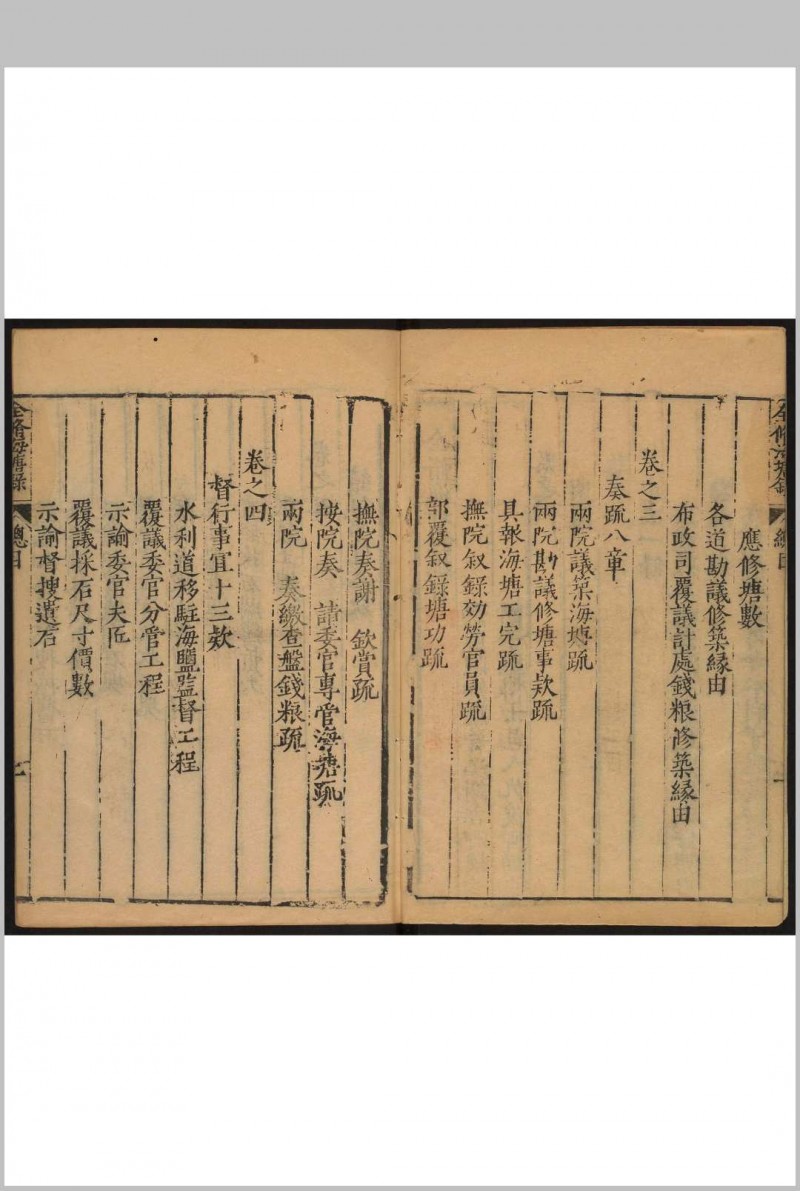 應修塘數
各道勘議修築縁由
布政司覆議計處錢粮修築縁由
卷之三
奏疏八章
兩院議築海塘疏
兩院勘議修塘事欵疏
具報海塘工完疏
撫院叙錄効勞官員疏
部覆叙錄塘功疏
撫院奏謝 欽賞疏
按院奏 請委官專管海塘疏
兩院 奏繳查盤錢粮疏
卷之四
督行事宜十三欵
水利道移駐海鹽監督工程
覆議委官分管工程
示諭委官夫匠
覆議採石尺寸價數
示諭督搜遺石
全修海塘錄
總目